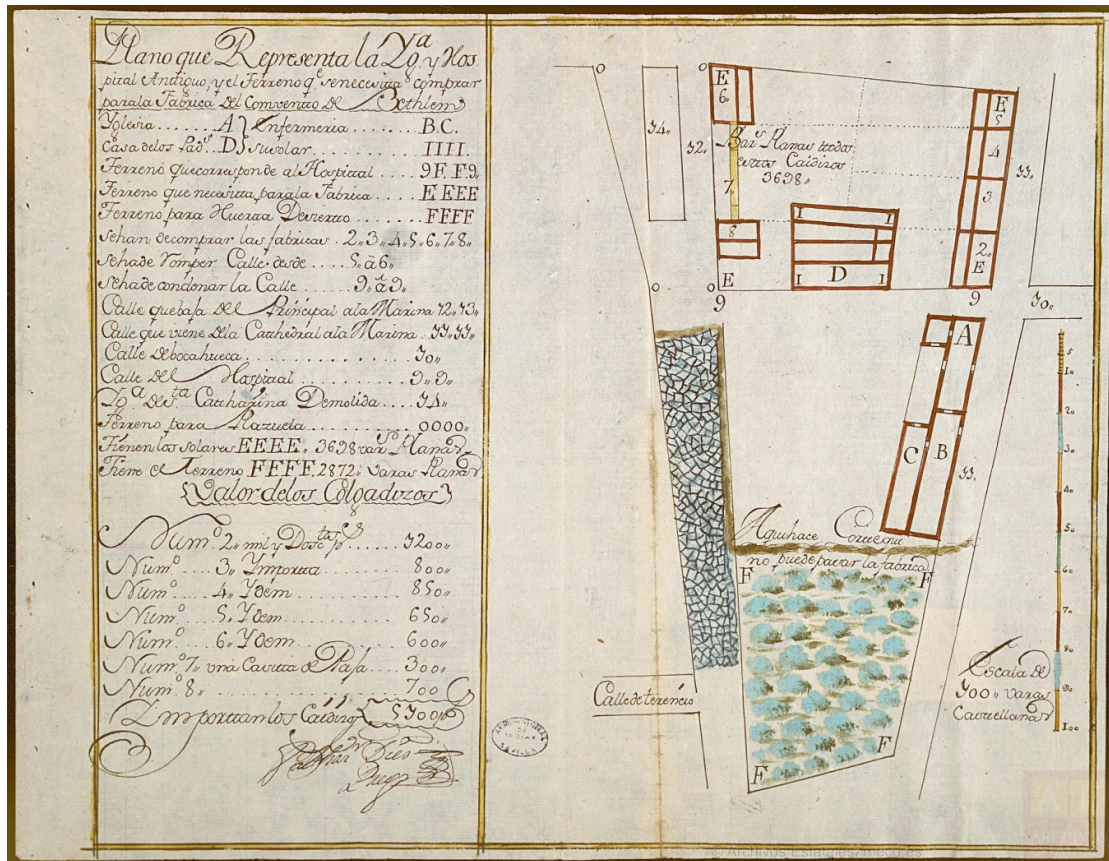 Plano que Representa lá Yg.ª y Hos
pital Antiguo, y el Terreno q.e se necesitta comprar
para la Fabrica del Comvento de Bethlem
Yglesia....... A} Enfermeria ....... B.C.
Casa delos Pad.s D} su solar ......... IIII.
Terreno que corresponde al Hospittal .... 9E. E9.
Terreno que necesitta para la Fabrica .... EEEE
Terreno para Huerta Desierto ....... FFFF
Sehan de comprar las fabricas 2,, 3,, 4,, 5,, 6,, 7,, 8,,
Sehade Romper Calle desde .... 5,, à 6,,
Sehade condenar la Calle ..... 9,, à 9,,
Calle que baja del Prinsipal ala Marina 12,, 13,,
Calle que viene dela Catthedral ala Marina 11,, 11,,
Calle de bocahueca ............. 10,,
Calle del Hospittal .......... 9,, 9,,
Yg.ª de S.ta Catthárina Demolida .... 14,,
Terreno para Plazuela ......... 0000,,
Tienen los solares EEEE. 3698 var.s Planas
Tiene el Terreno FFFF. 2872,, varas Planas
{Valor delos Colgadizos}
Num.o 2,, mil y Dosc.tos p.s ...... 1200,,
Num.o 3,, Ymportta ......... 800,,
Num.o 4,, Ydem ........... 850,,
Num.o 5,, Ydem ........... 650,,
Num.o 6,, Ydem ........... 600,,
Num.o 7,, una Casitta de Paja .... 300,,
Num.o 8,, ............... 700
Importtan los Caídizos {5100 p.s}
E
6,,
14,,
12,,
Var.s Planas ttodos
esttos Caídizos
3698,,
7,,
8
E
9
I
I
I
D
I
E
5
4
3
2,,
E
11,,
9
10,,
A
B
C
11,,
Aqui hace Cortte que
no puede pasar la fabrica
F
F
F
F
Calle de terencio
Escala de
100,, varas
Castellanas
5
10
20
30
40
50
60
70
80
90
100
ARCHIVO GENERAL
DE
INDIAS
SEVILLA
© Archivos Estatales, mecd.es